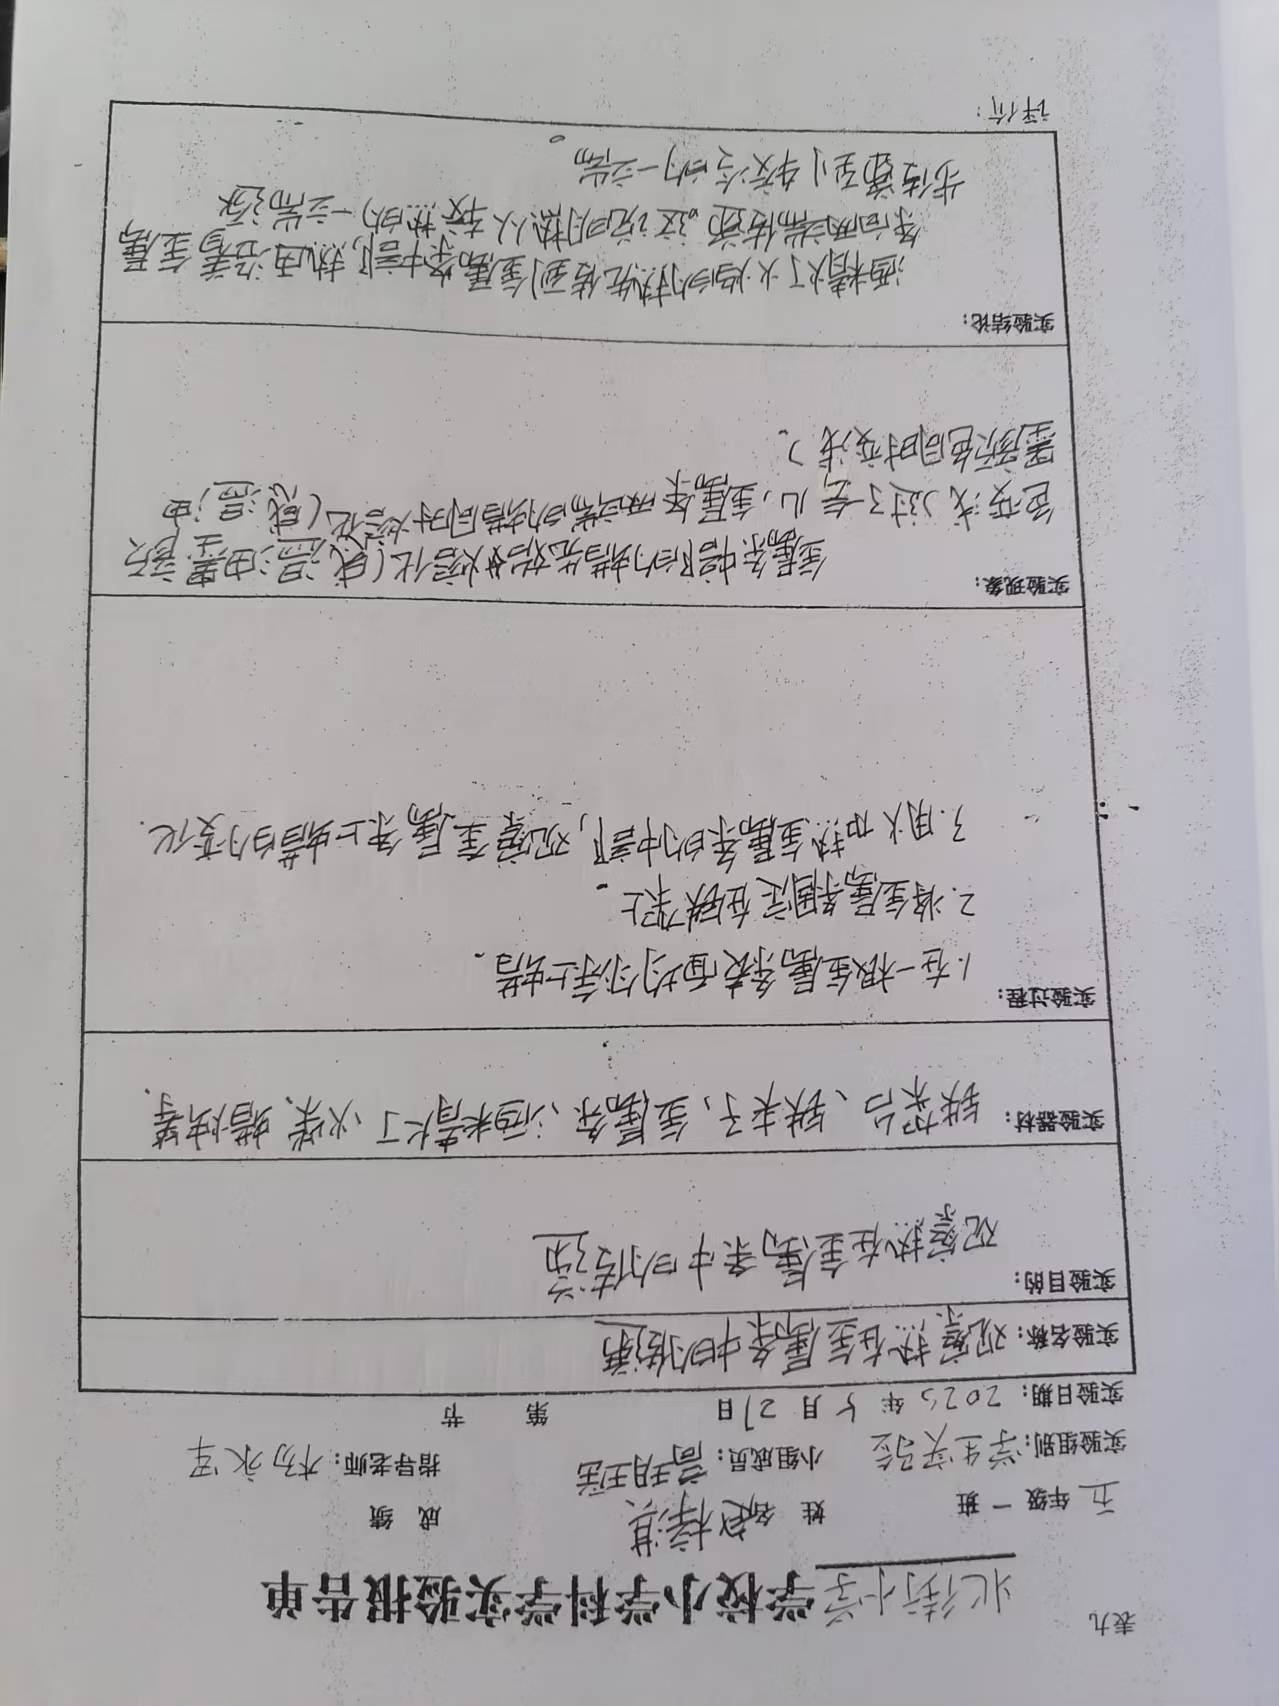 表九
北街小学学校小学科学实验报告单
五年级一班 姓名 梓淇 成绩
实验组别：学生实验 小组成员：高玥 指导老师：杨永军
实验日期：2025年5月21日 第 节
实验名称：观察热在金属条中的传递
实验目的：
观察热在金属条中的传递
实验器材：铁架台、铁夹子，金属条、酒精灯、火柴、蜡烛等.
实验过程：
1.在一根金属条表面均匀涂上蜡。
2.将金属条固定在铁架上。
3.用火加热金属条的中部，观察金属条上蜡的变化.
实验现象：
金属条中部的蜡先开始熔化(感温油墨颜
色变浅)过了一会儿，金属条两端的蜡同时熔化(感温油
墨颜色同时变浅)。
实验结论：
酒精灯火焰的热先传到金属条中部，热再沿着金属
条向两端传递。这说明热从较热的一端逐
步传递到较冷的一端。
评价：